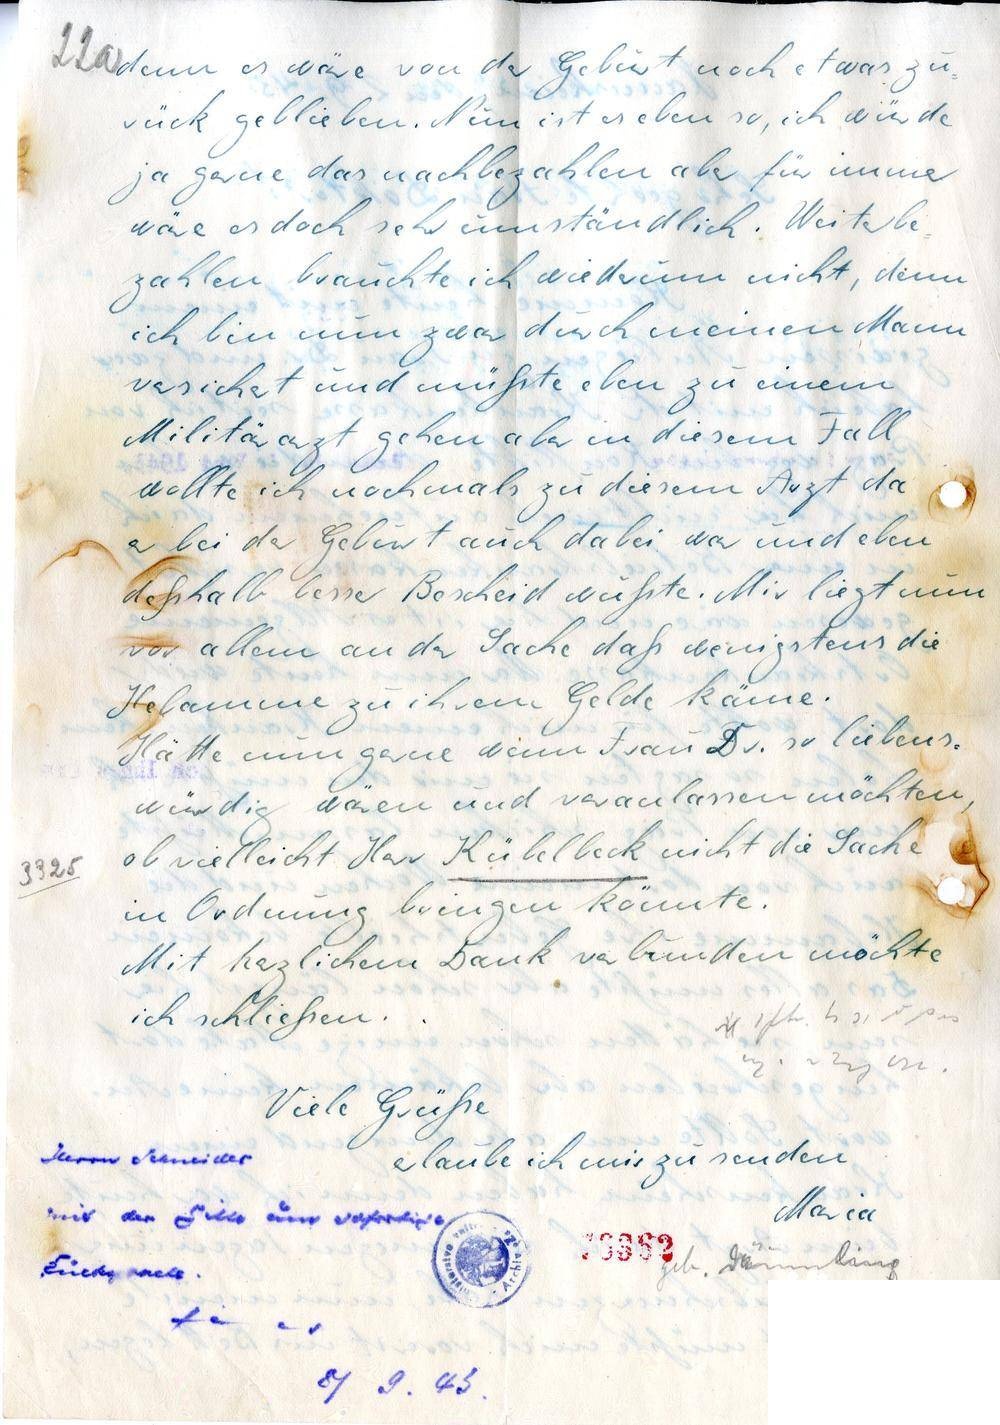 22a
denn es wäre von der Geburt noch etwas zu-
rück geblieben. Nun ist es eben so, ich würde
ja gerne das nachbezahlen aber für immer
wäre es doch sehr umständlich. Weiterbe-
zahlen brauchte ich wiederum nicht, denn
ich bin nun zwar durch meinen Mann
versichert und müßte eben zu einem
Militärarzt gehen aber in diesem Fall
wollte ich nochmals zu diesem Arzt da
er bei der Geburt auch dabei war und eben
deßhalb besser Bescheid wußte. Mir liegt nun
vor allem an der Sache daß wenigstens die
Hebamme zu ihrem Gelde käme.
Hätte nun gerne wenn Frau Dr. so liebens-
würdig wären und veranlassen möchten,
ob vielleicht Herr Kübelbeck nicht die Sache
3325
in Ordnung bringen könnte.
Mit herzlichem Dank verbunden möchte
ich schließen.
Viele Grüße
erlaube ich mir zu senden
Maria
geb.
Herrn Schneider
mit der Bitte um sofortige
Rücksprache.
8/9.43.
Archiv